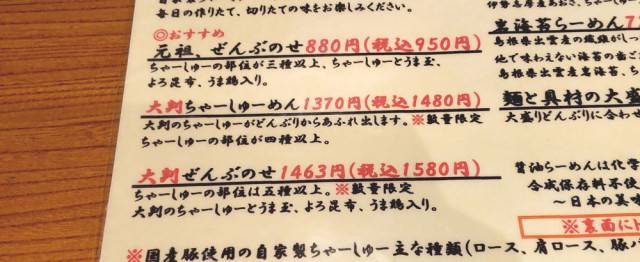 毎日の作りたて、切りたての味をお楽しみください。
◎おすすめ
元祖、ぜんぶのせ880円(税込950円)
ちゃーしゅーの部位が三種以上、ちゃーしゅーとうま玉、
よろ昆布、うま鶏入り。
大判ちゃーしゅーめん1370円(税込1480円)
大判のちゃーしゅーがどんぶりからあふれ出します。※数量限定
ちゃーしゅーの部位が四種以上。
大判ぜんぶのせ1463円(税込1580円)
ちゃーしゅーの部位は五種以上。※数量限定
大判のちゃーしゅーとうま玉、よろ昆布、うま鶏入り。
※国産豚使用の自家製ちゃーしゅー主な種類(ロース、肩ロース、豚バ
伊勢志摩産あおさ、
岩海苔らーめん
島根県出雲産の繊維がしっ
他で味わえない海苔の歯ご
島根県出雲産岩海苔、
麺と具材の大盛
大盛りどんぶりに合わせ
醤油らーめんは化学
合成保存料不使
～日本の美味
※裏面に